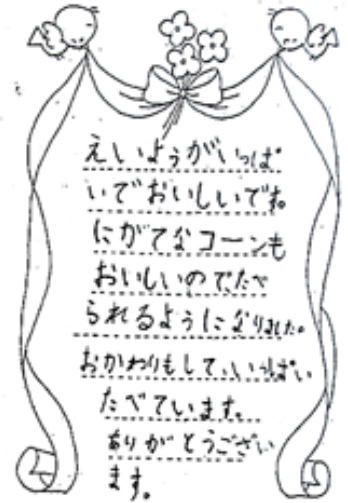 えいようがいっぱ
いでおいしいです。
にがてなコーンも
おいしいのでたべ
られるようになりました。
おかわりもして、いっぱい
たべています。
ありがとうござい
ます。